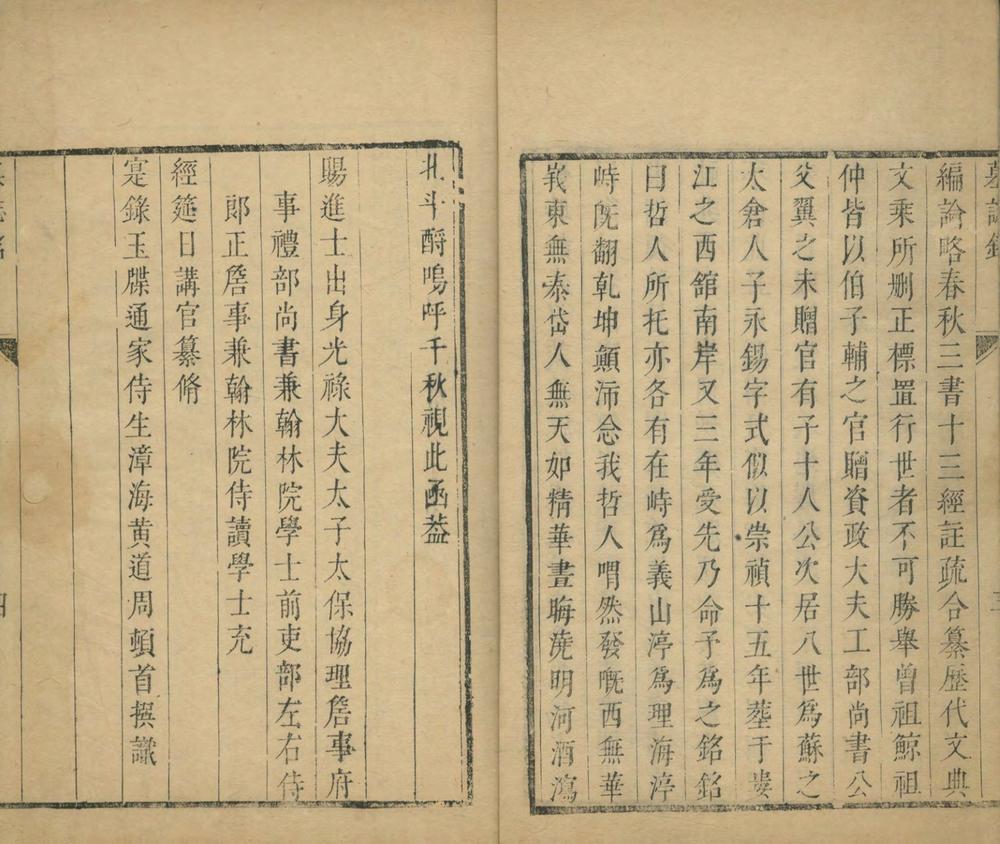 墓誌銘
編論略春秋三書十三經註疏合纂歷代文典
文乗所删正標置行世者不可勝舉曾祖鯨祖
仲皆以伯子輔之官贈資政大夫工部尚書公
父翼之未贈官有子十人公次居八世為蘇之
太倉人子永錫字式似以崇禎十五年塟于婁
江之西舘南岸又三年受先乃命予為之銘銘
曰哲人所托亦各有在峙爲義山渟爲理海渟
峙旣翻乾坤顚沛念我哲人喟然發嘅西無華
峩東無泰岱人無天如精華晝晦澆明河酒瀉
北斗酹嗚呼千秋視此函葢
賜進士出身光祿大夫太子太保協理詹事府
事禮部尚書兼翰林院學士前吏部左右侍
郎正詹事兼翰林院侍讀學士充
經筵日講官纂脩
寔錄玉牒通家侍生漳海黄道周頓首撰識